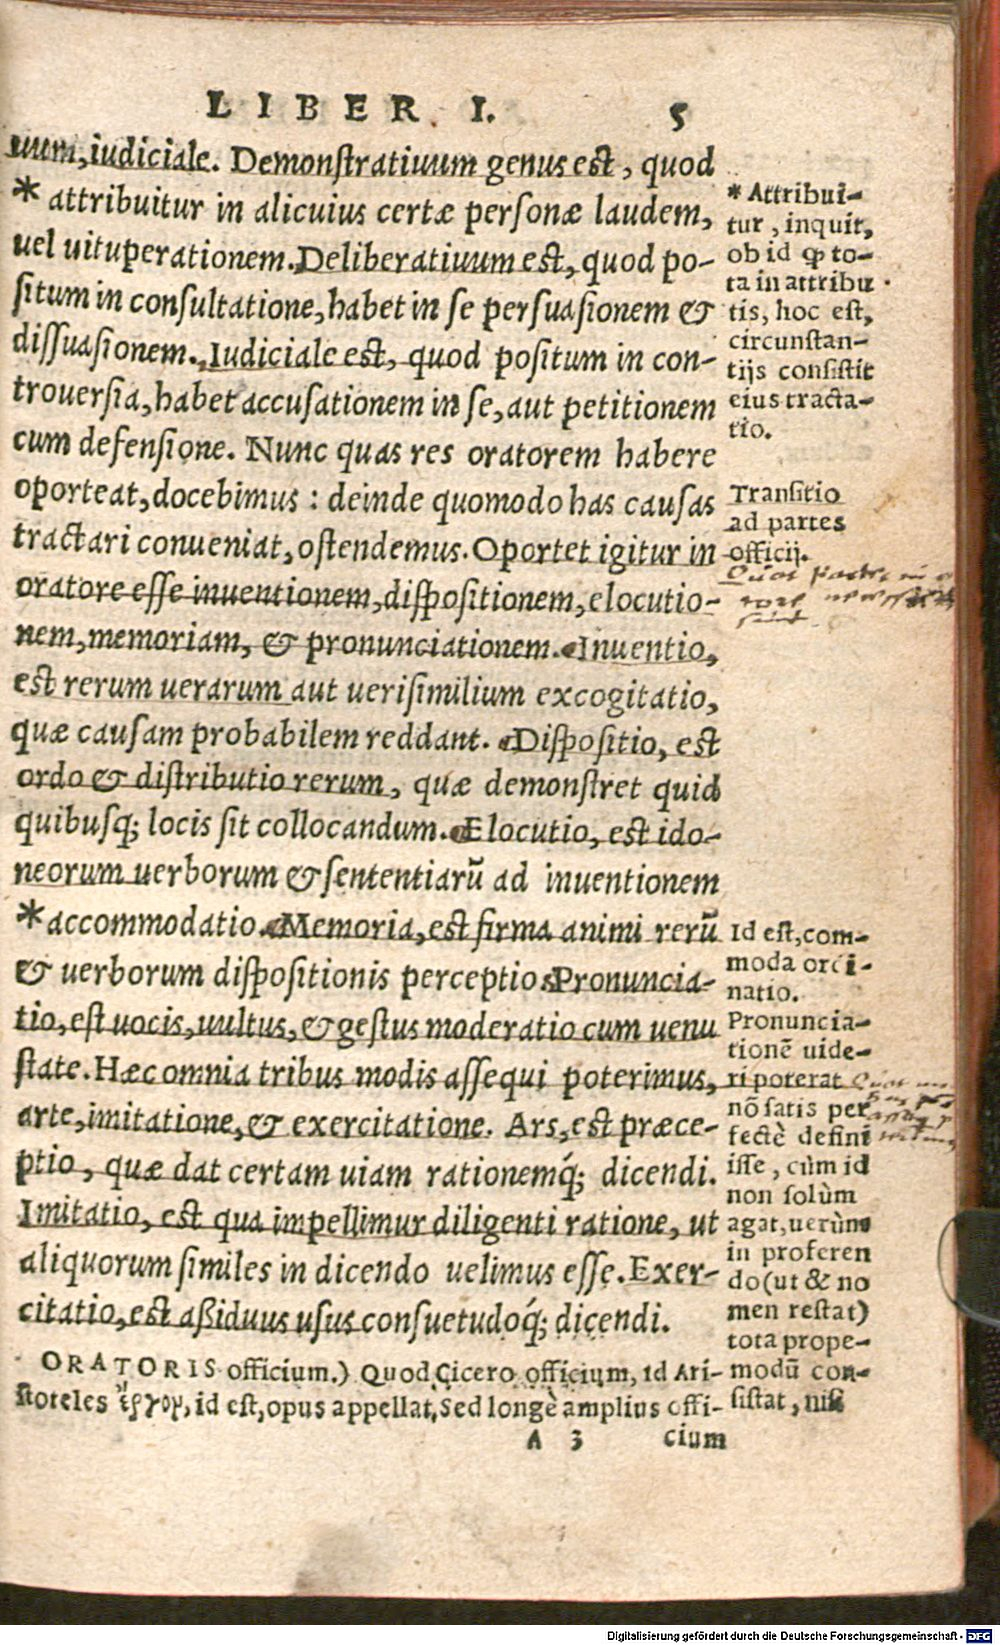 LIBER I. 5
uum, iudiciale. Demonſtratiuum genus est, quod
* attribuitur in alicuius certæ perſonæ laudem,
uel uituperationem. Deliberatiuum est, quod po-
ſitum in conſultatione, habet in ſe perſuaſionem &
diſſuaſionem. Iudiciale est, quod poſitum in con-
trouerſia, habet accuſationem in ſe, aut petitionem
cum defenſione. Nunc quas res oratorem habere
oporteat, docebimus : deinde quomodo has cauſas
tractari conueniat, oſtendemus. Oportet igitur in
oratore eſſe inuentionem, diſpoſitionem, elocutio-
nem, memoriam, & pronunciationem. Inuentio,
est rerum uerarum aut ueriſimilium excogitatio,
quæ cauſam probabilem reddant. Diſpoſitio, est
ordo & diſtributio rerum, quæ demonſtret quid
quibuſq; locis ſit collocandum. Elocutio, est ido-
neorum uerborum & ſententiarũ ad inuentionem
* accommodatio. Memoria, est firma animi rerũ
& uerborum diſpoſitionis perceptio. Pronuncia-
tio, est uocis, uultus, & geſtus moderatio cum uenu
ſtate. Hæc omnia tribus modis aſſequi poterimus,
arte, imitatione, & exercitatione. Ars, est præce-
ptio, quæ dat certam uiam rationemq́; dicendi.
Imitatio, est qua impellimur diligenti ratione, ut
aliquorum ſimiles in dicendo uelimus eſſe. Exer-
citatio, est aßiduus uſus conſuetudoq́; dicendi.
ORATORIS officium.) Quod Cicero officium, id Ari-
ſtoteles ἔργον, id est, opus appellat. Sed longè amplius offi-
A 3 cium
* Attribui-
tur, inquit,
ob id ꝙ to-
ta in attribu
tis, hoc eſt,
circunſtan-
tijs conſiſtit
eius tracta-
tio.
Tranſitio
ad partes
officij.
Quot partes in
Id eſt, com-
moda ordi-
natio.
Pronuncia-
tionẽ uide-
ri poterat
nõ ſatis per
fectè defini
iſſe, cùm id
non ſolùm
agat, uerùm
in proferen
do (ut & no
men reſtat)
tota prope-
modũ con-
ſiſtat, niſi
Digitalisierung gefördert durch die Deutsche Forschungsgemeinschaft - DFG